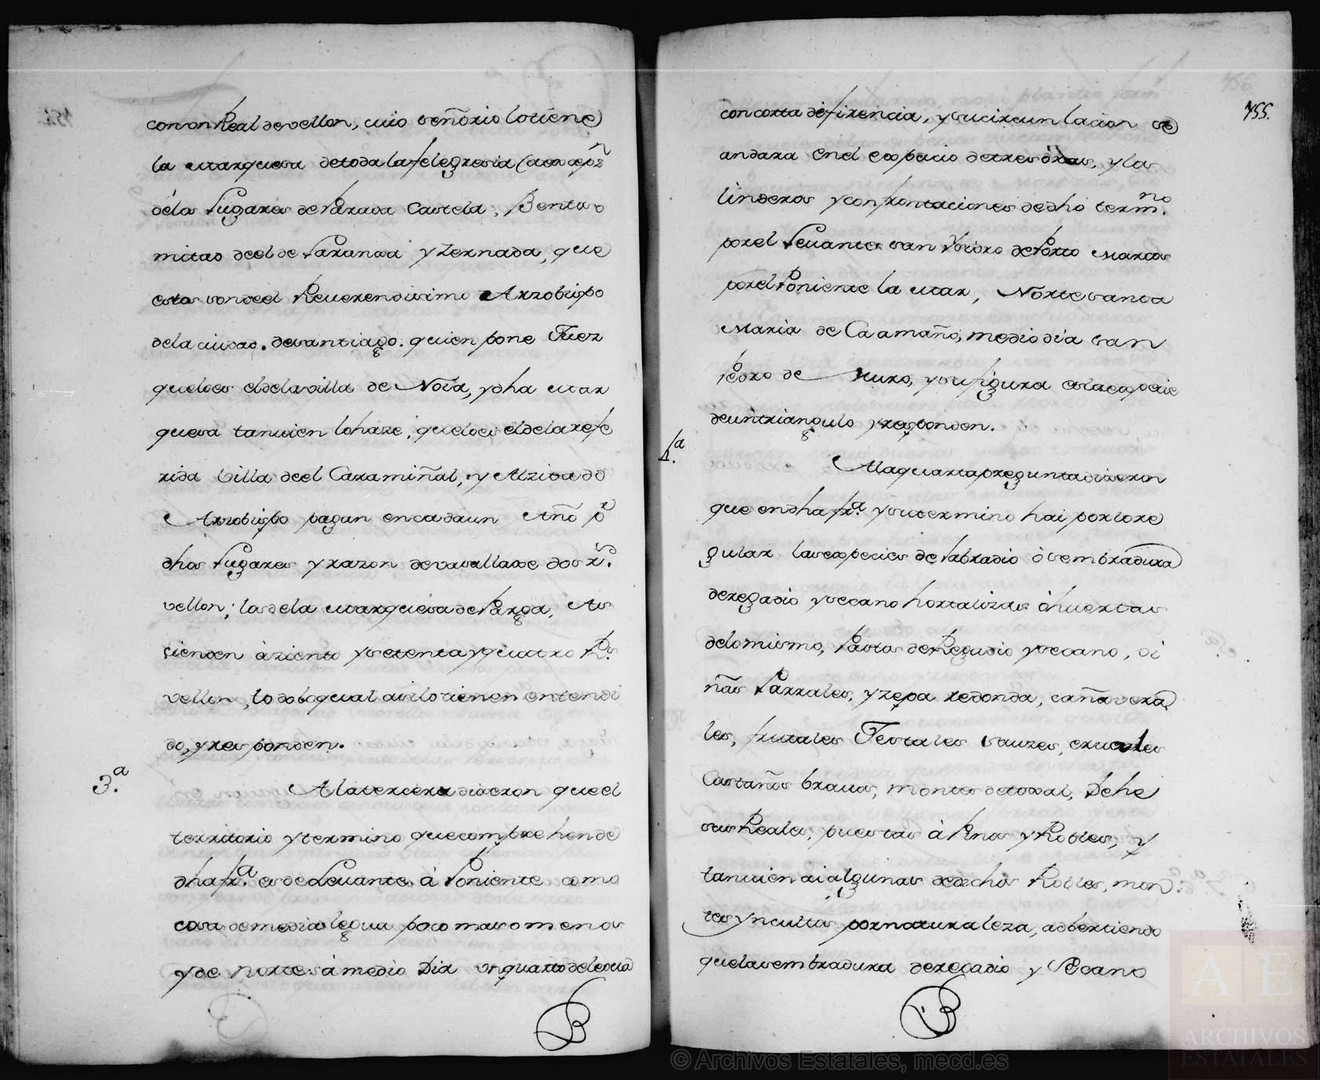 con un Real de vellon, cuio señorio lo tiene
la Marquesa de toda la felegresia (a excepz.n
de los Lugares de Parada Castela, Bentoso
mitad de el de Paranoi y Zernada, que
estos son de el Reverendisimo Arzobispo
de la ciudad de santiago. quien pone Juez
que lo es el de la villa de Noia, y dha Mar
quesa tanvien lo haze, que lo es el de la refe
rida Villa de el Caramiñal, y Al citado
Arzobispo pagan en cada un Año p.r
dhos Lugares y razon de vasallaxe dos rr.s
vellon; los de la Marquesa de Parga, As
cienden à ziento y setenta y quatro Rs.
vellon, todo lo qual asi lo tienen entendi
do, y responden.
3.a A la terzera dixeron que el
territorio y termino que comprehende
dha fr.a es de Levante â Poniente como
cosa de media legua poco mas o menos
y de Norte â medio Dia un quarto de legua
455.
con corta difirencia, y su circunlacion se
andara en el espacio de tres oras, y los
linderos y confrontaciones de dho term.no
por el Levante san Ysidro de Posto Marcos
por el Poniente la Mar, Norte santa
Maria de Caamaño, medio dia san
Pedro de Muro, y su figura es la espezie
de un triangulo y responden.
4.a A la quarta pregunta dixeron
que en dha fr.a y su termino hai por lo re
gular las especies de labradio ò sembradura
de regadio y secano hortalizas ô huertas
de lo mismo, Pastos de Regadio y secano, vi
ñas Parrales, y zepa redonda, cañavera
les, frutales Jestales sauzes,
Castaños bravos, montes de tojal, Dehe
sas Reales, puestas â Pinos y Robles, y
tanvien ai algunas de dchos Robles, mon
tes yncultos por naturaleza, adbertiendo
que la sembradura de regadio y Secano
© Archivos Estatales, mecd.es
AE
ARCHIVOS
ESTATALES